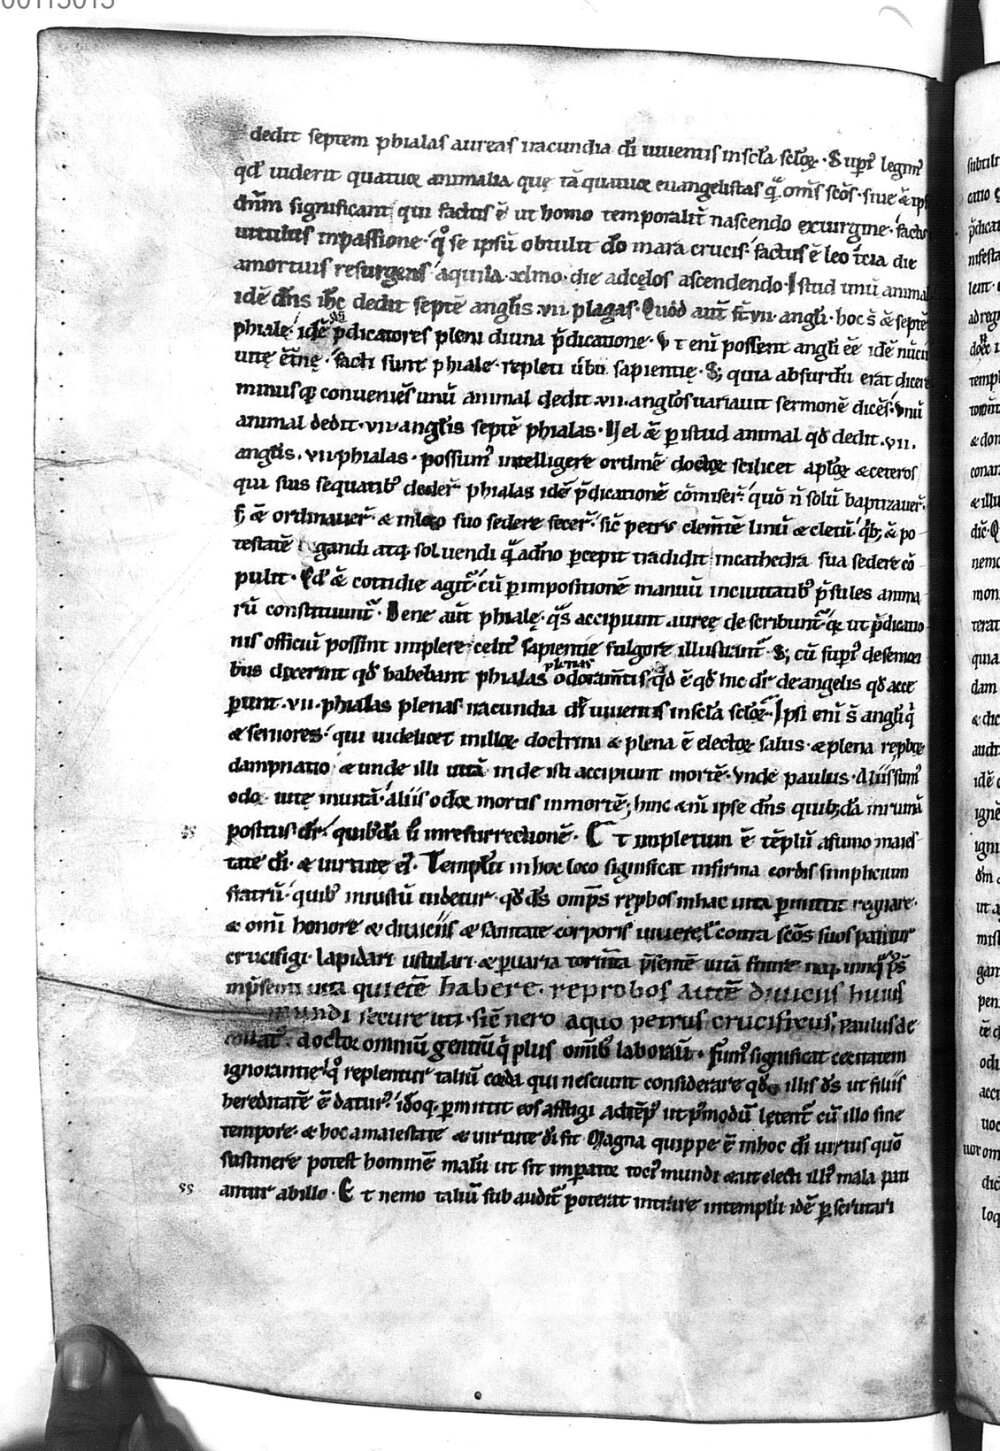 dedit septem phialas aureas iracundia dī uiuentis in scła scłoꝝ · Supi᷒ legim᷒
qđ uiderit quatuoꝛ animalia que tā quatuoꝛ euangelistas q̄ om̄s scōs · siue & ip
dn̄m significant qui factus ē ut homo temporalit̄ nascendo ex uirgine · fact᷒
uitulus in passione · q̇ se ipsū obtulit dō in ara crucis · factus ē leo t̄cia die
a mortuis resurgens aquila · xlmo · die ad cęlos ascendendo · Istud unū animal
idē dn̄s ih̄c dedit septē angłis · vii plagas · Quod aut̄ st̄ · vii · angłi · hoc s̄ & septē
phiale · idē p̄dicatores pleni diuina p̄dicatione · Vt eni᷒ possent angłi ēē idē nūcii
uitę et̄nę · facti sunt phiale · repleti ūbo sapientię · S; quia absurdū erat dicere
minusq; conueniēs unū animal dedit · vii · angłos uariauit sermonē dicēs · Vnū
animal dedit · vii · angłis septē phialas · Vel & p istud animal qđ dedit · vii ·
angłis · vii · phialas · possum᷒ intelligere ordinē doctoꝝ scilicet apłoꝝ & ceteros
qui suis sequatib᷒ deder̄ phialas idē p̄dicationē cōmiser̄ · quō n̄ solū baptizauer̄
s; & ordinauer̄ · & in loco suo sedere fecer̄ · sic̄ petrus clem̄tē linū & cletū · qb; & po
testatē ligandi atq; soluendi q̄ a dn̄o percepit tradidit in cathedra sua sedere cō
pulit · Qđ & cottidie agit᷒ · cū p impositionē manuū incuntatib᷒ p̄sules anima
rū constituunt᷒ · Bene aut̄ phialę · q̄s accipiunt aureę describunt᷒ · q̄ ut p̄dicatio
nis officiū possint implere · celit᷒ sapientie fulgore illustrant᷒ · S; cū supi᷒ de senioꝛi
bus dixerint qđ habebant phialas plenas odoram̄tis · qđ ē qđ hic dr̄ de angelis qđ acce
perunt · vii · phialas plenas iracundia dī uiuentis in scła scłoꝝ · Ipsi eni᷒ s̄ angłi q̇
& seniores · qui uidelicet in illoꝝ doctrina & plena ē electoꝝ salus · & plena rep̄boꝝ
dampnatio · & unde illi uitā inde isti accipiunt mortē · Vnde paulus · Aliis sum᷒
odoꝛ uite in uitā · aliis odoꝛ mortis in mortē; hinc & eni᷒ ipse dn̄s quib;dā in ruinā
positus dr̄ · quib;dā ū in resurrectionē · Et impletum ē tēplū a fumo maies
tate dī · & uirtute ei᷒ · Templū in hoc loco significat infirma cordis simplicium
fratrū · quib᷒ iniustū uidetur · qđ dś omīs rępbos in hac uita pmittit regnare ·
& omī honore & diuiciis & sanitate corporis uiuere · & contra scōs suos patiuntur
crucifigi · lapidari ustulari & p uaria torm̄ta p̄sentē uitā finire
in p̄senti uita quietē habere · reprobos autē diuiciis huius
mundi secure uti · sic̄ nero a quo petrus crucifixus, paulus de
collat᷒ · doctoꝛ omniū gentiū q̇ plus omib᷒ laborauit · fum᷒ significat cecitatem
ignorantie · q̇ replentur taliū coꝛda qui nesciunt considerare qđ illis dś ut filiis
hereditatē ē datur᷒ · idoq; pmittit eos affligi ad tēp᷒ ut p᷒modū lętent᷒ cū illo sine
tempore · & hoc a maiestate & uirtute dī fit · Magna quippe ē in hoc dī uirtus quō
sustinere potest hominē malū ut sit imperatoꝛ toci᷒ mundi & ut electi illi᷒ mala pati
antur ab illo · Et nemo taliū sub audit᷒ poterat intrare in templū idē pscrutari